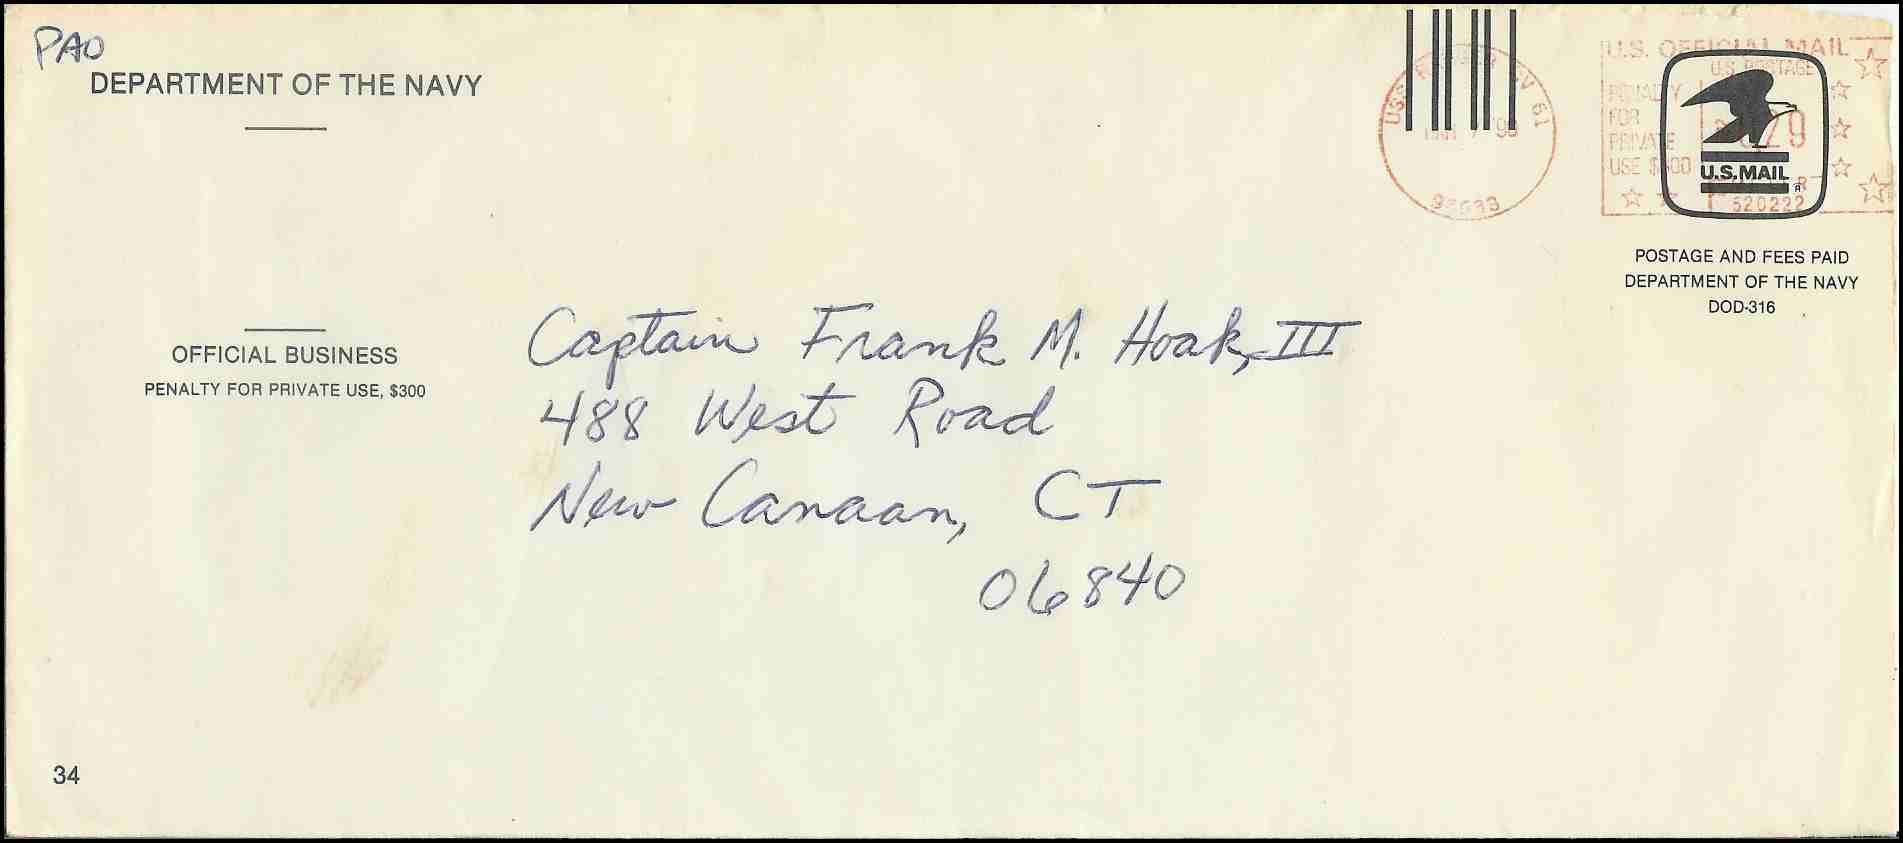 PAO
DEPARTMENT OF THE NAVY
OFFICIAL BUSINESS
PENALTY FOR PRIVATE USE, $300
USS RANGER CV 61
7 '93
U.S. OFFICIAL MAIL
U.S. POSTAGE
PENALTY
FOR
PRIVATE
USE $300
U.S.MAIL
R
520222
POSTAGE AND FEES PAID
DEPARTMENT OF THE NAVY
DOD-316
Captain Frank M. Hoak, III
488 West Road
New Canaan, CT
06840
34